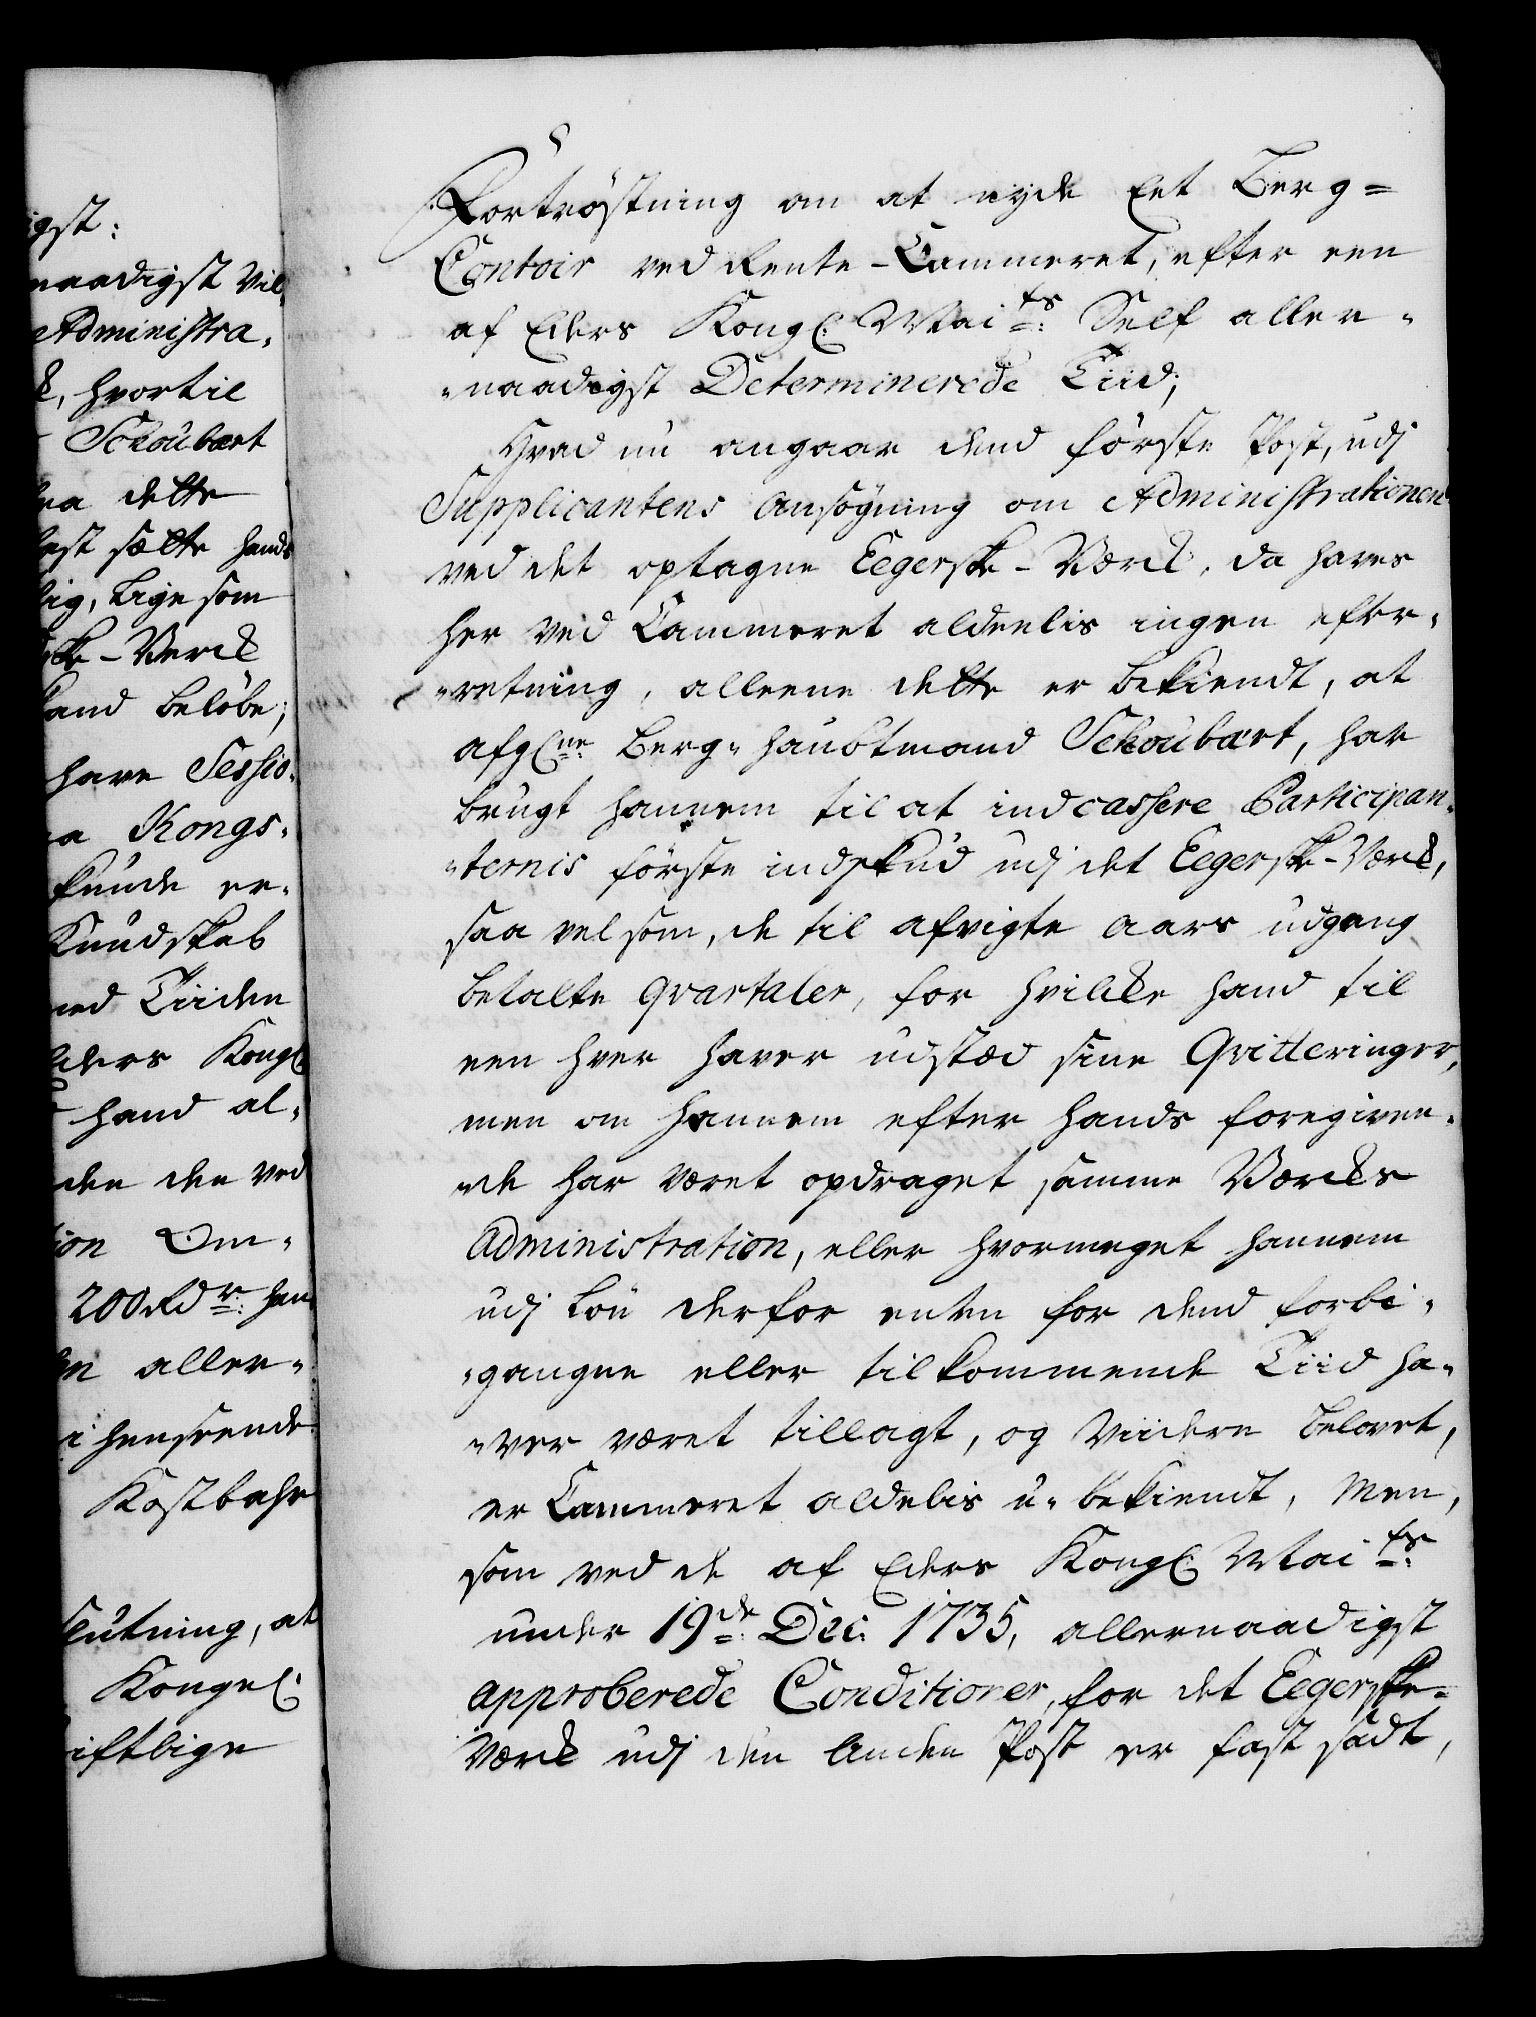 igst:
naadigst vil,
Administra,
k, hvortil
Schoubært
aa dette
fast sætte hands
lig, lige som
ske-Verck
kand beløbe;
have Sessio,
a Kongs,
kunde er,
Kundskab
med Tiiden
Eders Kongl.
hand al,
den der ved
ion Om,
200 Rdr: han
en aller,
i henseende
Kostbahr
slutning, at
Kongel:
riftlige
Fortrøstning om at nyde Eet Berg=
Contoir ved Rente-Cammeret, efter een
af Eders Kongl: Maits: Self aller,
,naadigst Determinerede Tiid;
Hvad nu angaar dend første Post, udj
Supplicantens ansøgning om Administrationen
ved det optagne Eegerske-Værck, da haves
her ved Cammeret aldeelis ingen efter,
,retning, alleene dette er bekiendt, at
afgl:ne Berg, haubtmand Schoubært, har
brugt hannem til at indcassere Participan,
,ternis første indskud udj det Eegerske-Værck,
saa vel som, de til afvigte aars udgang
betalte qvartaler, for hvilcke hand til
een hver haver udstæd sine Qvitteringer,
men om hannem efter hands foregiven,
,de har været opdraget samme Værckes
Administration, eller hvormeget hannem
udj Løn derfor enten for dend forbi,
,gangne eller tilkommende Tiid ha,
,ver været tillagt, og viidere belovet,
er Cammeret aldelis u, bekiendt, Men,
som ved de af Eders Kongl: Maits:
under 19de: Dec: 1735, allernaadigst
approberede Conditioner, for det Eegerske-
Værck udj den Anden Post er fast sadt,